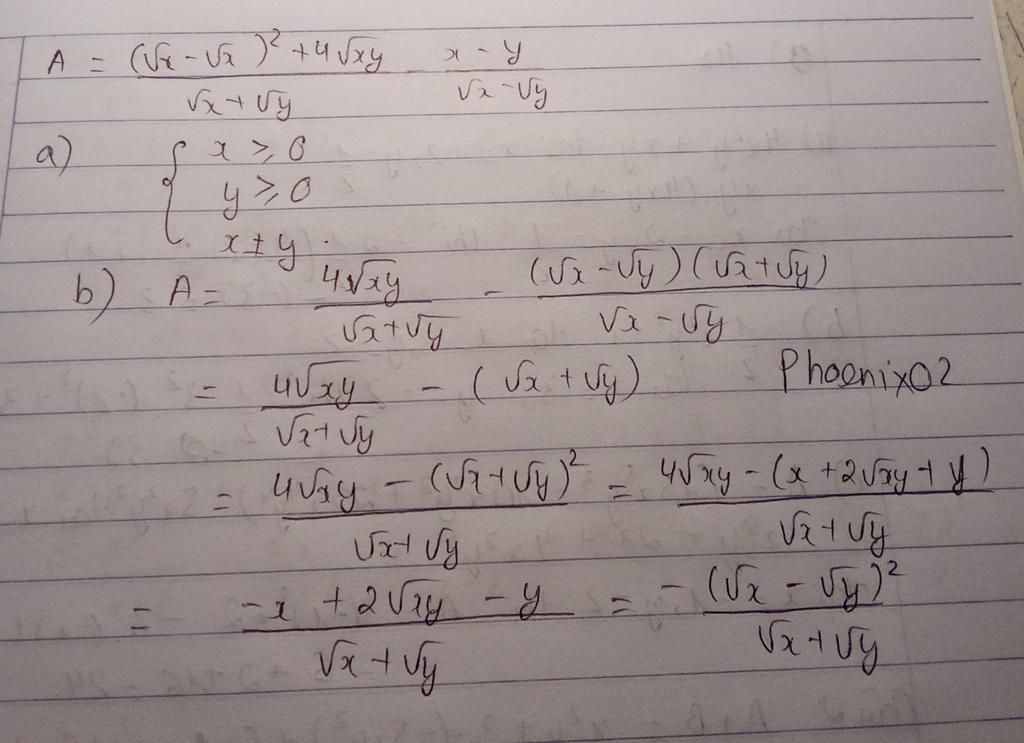 A = (√x - √x)² + 4√xy / √x + √y - x - y / √x - √y
a) { x ≥ 0
y ≥ 0
x ≠ y.
b) A = 4√xy / √x + √y - (√x - √y)(√x + √y) / √x - √y
= 4√xy / √x + √y - (√x + √y) Phoenix02
= 4√xy - (√x + √y)² / √x + √y = 4√xy - (x + 2√xy + y) / √x + √y
= -x + 2√xy - y / √x + √y = -(√x - √y)² / √x + √y